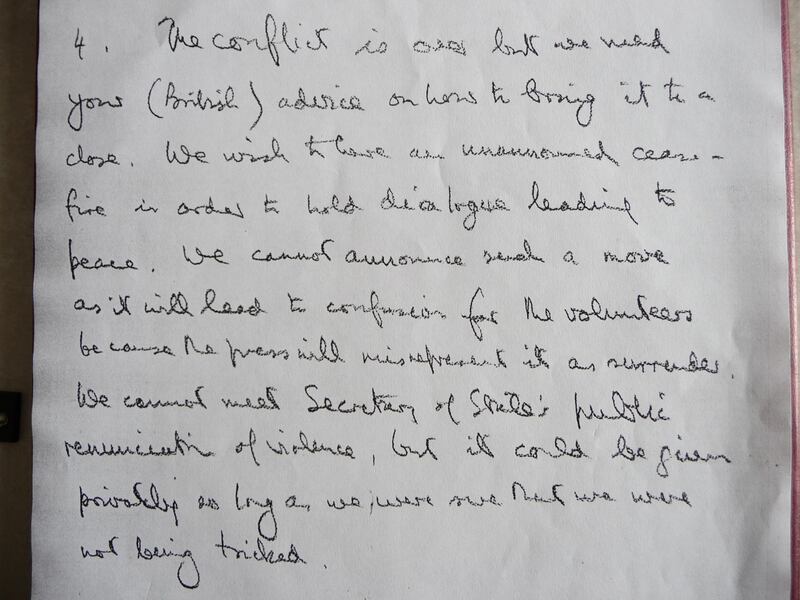 4. The conflict is over but we need
your (British) advice on how to bring it to a
close. We wish to have an unannounced cease-
fire in order to hold dialogue leading to
peace. We cannot announce such a move
as it will lead to confusion for the volunteers
because the press will misrepresent it as surrender.
We cannot meet Secretary of State's public
renunciation of violence, but it could be given
privately as long as we were sure that we were
not being tricked.